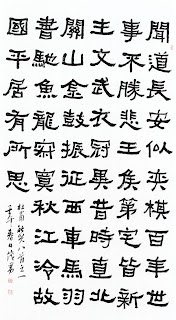 聞道長安似奕棋百年世
事不勝悲王侯第宅皆新
主文武衣冠異昔時直北
關山金鼓振征西車馬羽
書馳魚龍寂寞秋江冷故
國平居有所思
杜甫秋興八首之一
春日